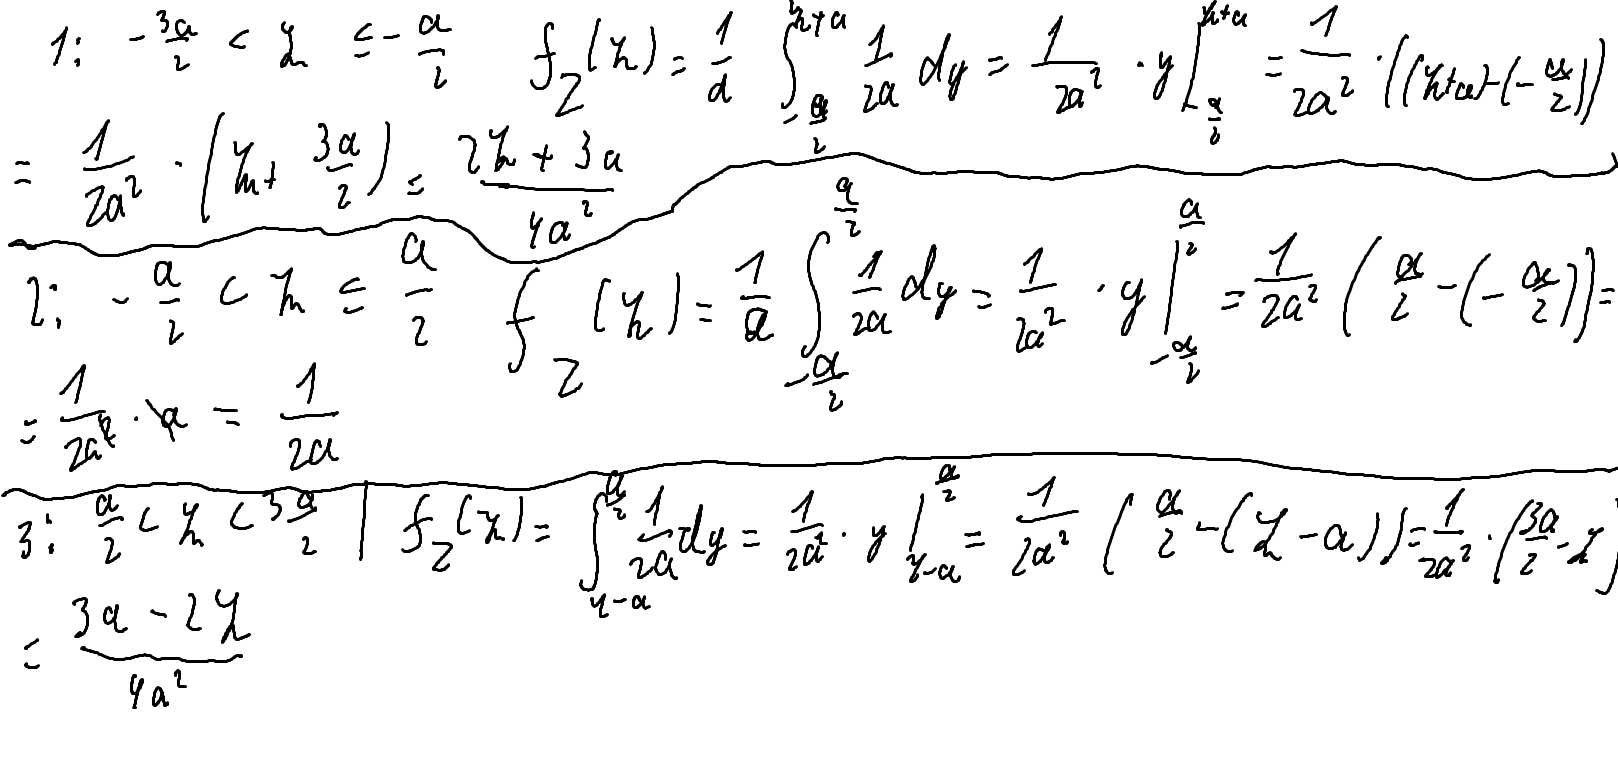 1: -3a/2 < z ≤ -a/2 f_Z(z) = 1/a ∫_{-a/2}^{z+a} 1/2a dy = 1/2a² · y |_{-a/2}^{z+a} = 1/2a² · ((z+a)-(-a/2))
= 1/2a² · (z + 3a/2) = (2z + 3a)/4a²
2: -a/2 < z ≤ a/2 f_Z(z) = 1/a ∫_{-a/2}^{a/2} 1/2a dy = 1/2a² · y |_{-a/2}^{a/2} = 1/2a² (a/2 - (-a/2)) =
= 1/2a² · a = 1/2a
3: a/2 < z < 3a/2 | f_Z(z) = ∫_{z-a}^{a/2} 1/2a dy = 1/2a² · y |_{z-a}^{a/2} = 1/2a² (a/2 - (z - a)) = 1/2a² · (3a/2 - z)
= (3a - 2z)/4a²